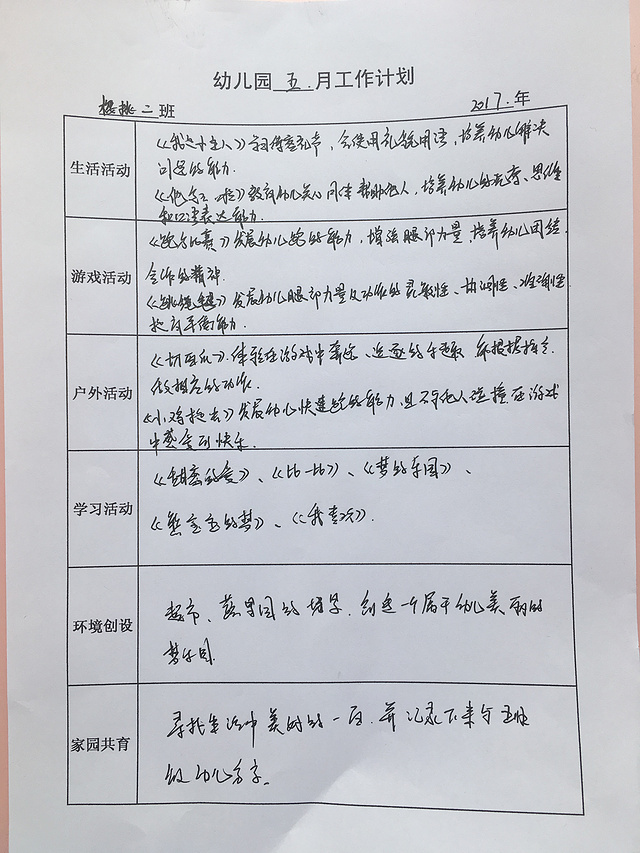 幼儿园 五 月工作计划
樱桃二班 2017.年
生活活动
《我是小主人》学习待客礼节，会使用礼貌用语，培养幼儿解决
问题的能力.
教育幼儿关心同伴帮助他人，培养幼儿的观察、思维
和口语表达能力.
游戏活动
《跑步比赛》发展幼儿跑的能力，增强腿部力量，培养幼儿团结
合作的精神.
发展幼儿腿部力量及动作的灵敏性、协调性、准确性
提高平衡能力.
户外活动
《切西瓜》.体验在游戏中奔跑、追逐的乐趣 能根据指令
做相应的动作.
《小鸡捉虫》发展幼儿快速跑的能力且不与他人碰撞在游戏
中感受到快乐.
学习活动
《甜蜜的爱》、《比一比》、《梦的乐园》、
《熊宝宝的梦》、《我喜欢》.
环境创设
超市、蔬果园的场景.创造一个属于幼儿美丽的
梦乐园.
家园共育
寻找生活中美好的一面.并记录下来与班
级幼儿分享。